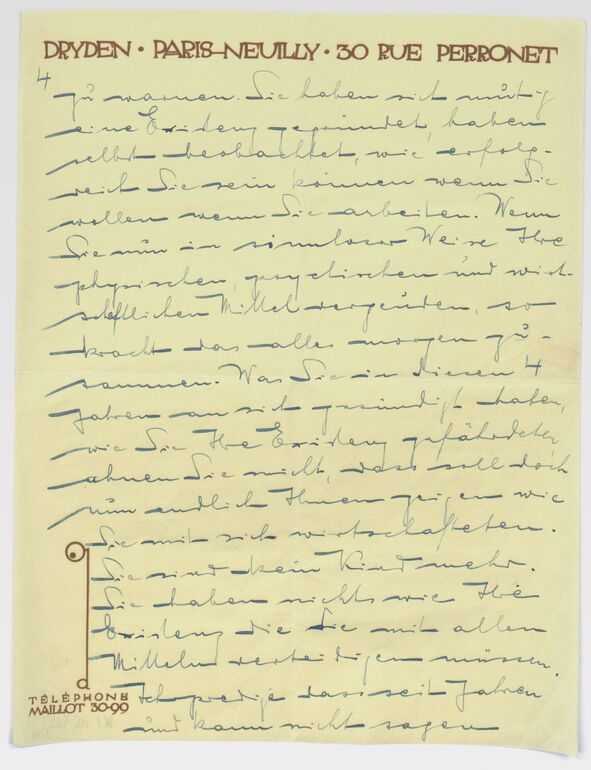 DRYDEN · PARIS-NEUILLY · 30 RUE PERRONET
4
zu warnen. Sie haben sich mutig
eine Existenz gegründet, haben
selbst beobachtet, wie erfolg-
reich Sie sein können wenn Sie
wollen wenn Sie arbeiten. Wenn
Sie nun in sinnloser Weise Ihre
physischen, psychischen und wirt-
schftlichen Mittel vergeuden, so
kracht das alles morgen zu-
sammen. Was Sie in diesen 4
Jahren an sich gesündigt haben,
wie Sie Ihre Existenz gefährdeten,
ahnen Sie nicht, dass soll doch
nun endlich Ihnen zeigen wie
Sie mit sich wirtschafteten.
Sie sind kein Kind mehr.
Sie haben nichts wie Ihre
Existenz die Sie mit allen
Mitteln verteidigen müssen.
Ich predige das seit Jahren
und kann nicht sagen
TÉLÉPHONE
MAILLOT 30-99